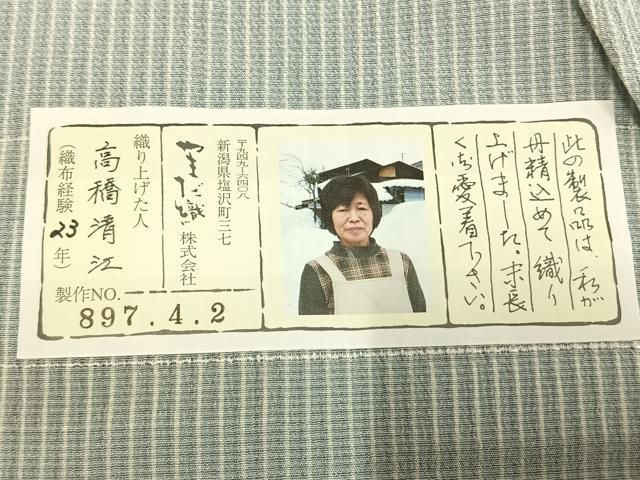 此の製品は、私が
丹精込めて織り
上げました。末長
く御愛着下さい。
〒九四九-六四〇八
新潟県塩沢町三七
やまだ織 株式会社
織り上げた人
高橋清江
(織布経験 23 年)
製作NO.
897.4.2